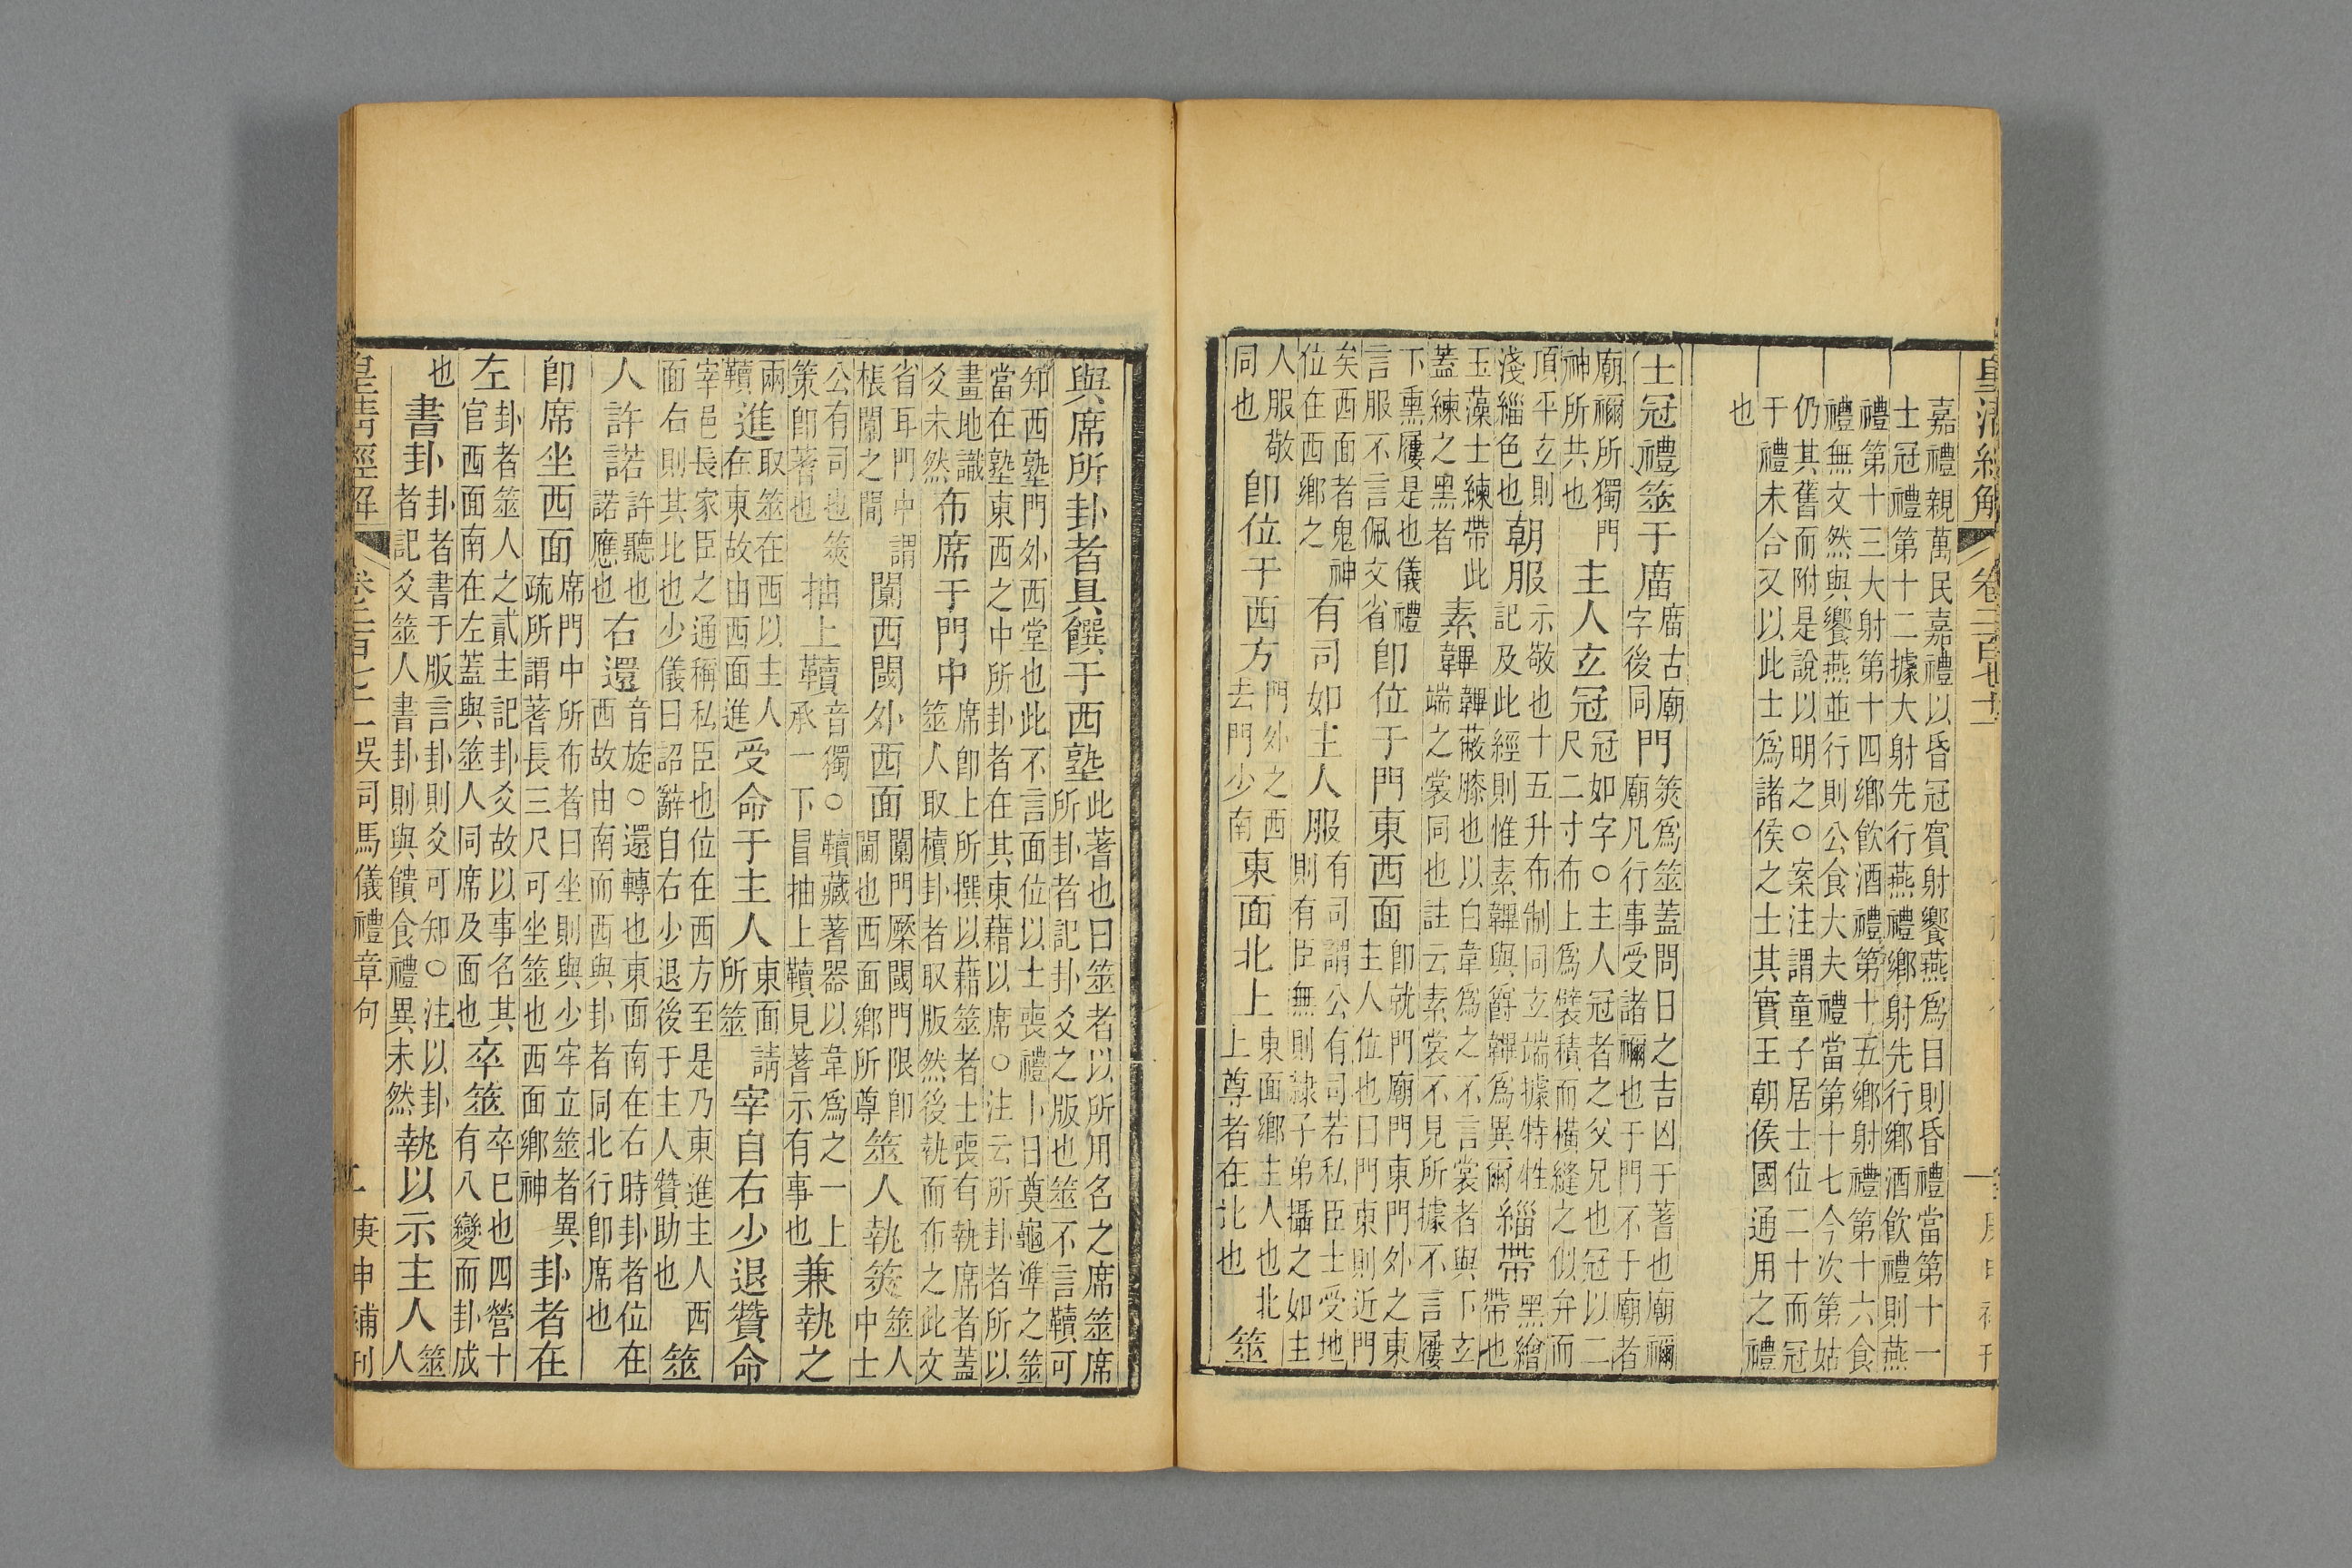 皇清經解 卷二百七十一
嘉禮親萬民嘉禮以昏冠賓射饗燕爲目則昏禮當第十一
士冠禮第十二據大射先行燕禮鄉射先行鄉酒飲禮則燕
禮第十三大射第十四鄉飲酒禮第十五鄉射禮第十六食
禮無文然與饗燕並行則公食大夫禮當第十七今次第姑
仍其舊而附是說以明之○案注謂童子居士位二十而冠
于禮未合又以此士爲諸侯之士其實王朝侯國通用之禮
也
士冠禮筮于庿庿古廟字後同門筴爲筮蓋問日之吉凶于蓍也廟禰廟凡行事受諸禰也于門不于廟者
廟禰所獨門神所共也主人玄冠冠如字○主人冠者之父兄也冠以二尺二寸布上爲襞積而橫縫之似弁而
頂平玄則淺緇色也朝服示敬也十五升布制同玄端據特牲記及此經則惟素韠與爵韠爲異爾緇帶黑繒帶也
玉藻士練帶此蓋練之黑者素韠韠蔽膝也以白韋爲之不言裳者與玄端之裳同也註云素裳不見所據不言屨
下熏屨是也儀禮言服不言佩文省卽位于門東西面卽就門廟門東門外之東主人位也曰門東則近門
矣西面者鬼神位在西鄉之有司如主人服有司謂公有司若私臣士受地則有臣無則隷子弟攝之如主
人服敬同也卽位于西方門外之西去門少南東面北上東面鄉主人也北上尊者在北也筮
與席所卦者具饌于西塾此蓍也曰筮者以所用名之席筮席所卦者記卦爻之版也筮不言韇可
知西塾門外西堂也此不言面位以士喪禮卜日奠龜準之筮當在塾東西之中所卦者在其東藉以席○注云所卦者所以
畫地識爻未然布席于門中席卽上所撰以藉筮者士喪有執席者蓋筮人取櫝卦者取版然後執而布之此文
省耳門中謂棖闑之閒闑西閾外西面闑門橜閾門限卽閫也西面鄉所尊筮人執筴筮人中士
公有司也筴策卽蓍也抽上韇音獨○韇藏蓍器以韋爲之一上承一下冒抽上韇見蓍示有事也兼執之
兩韇進取筮在西以主人在東故由西面進受命于主人東面請所筮宰自右少退贊命
宰邑長家臣之通稱私臣也位在西方至是乃東進主人西面右則其北也少儀曰詔辭自右少退後于主人贊助也筮
人許諾許聽也諾應也右還音旋○還轉也東面南在右時卦者位在西故由南而西與卦者同北行卽席也
卽席坐西面席門中所布者曰坐則與少牢立筮者異疏所謂蓍長三尺可坐筮也西面鄉神卦者在
左卦者筮人之貳主記卦爻故以事名其官西面南在左蓋與筮人同席及面也卒筮卒已也四營十有八變而卦成
也書卦卦者書于版言卦則爻可知○注以卦者記爻筮人書卦則與饋食禮異未然執以示主人筮人
皇清經解 卷二百七十一 吳司馬儀禮章句 二 庚申補刊